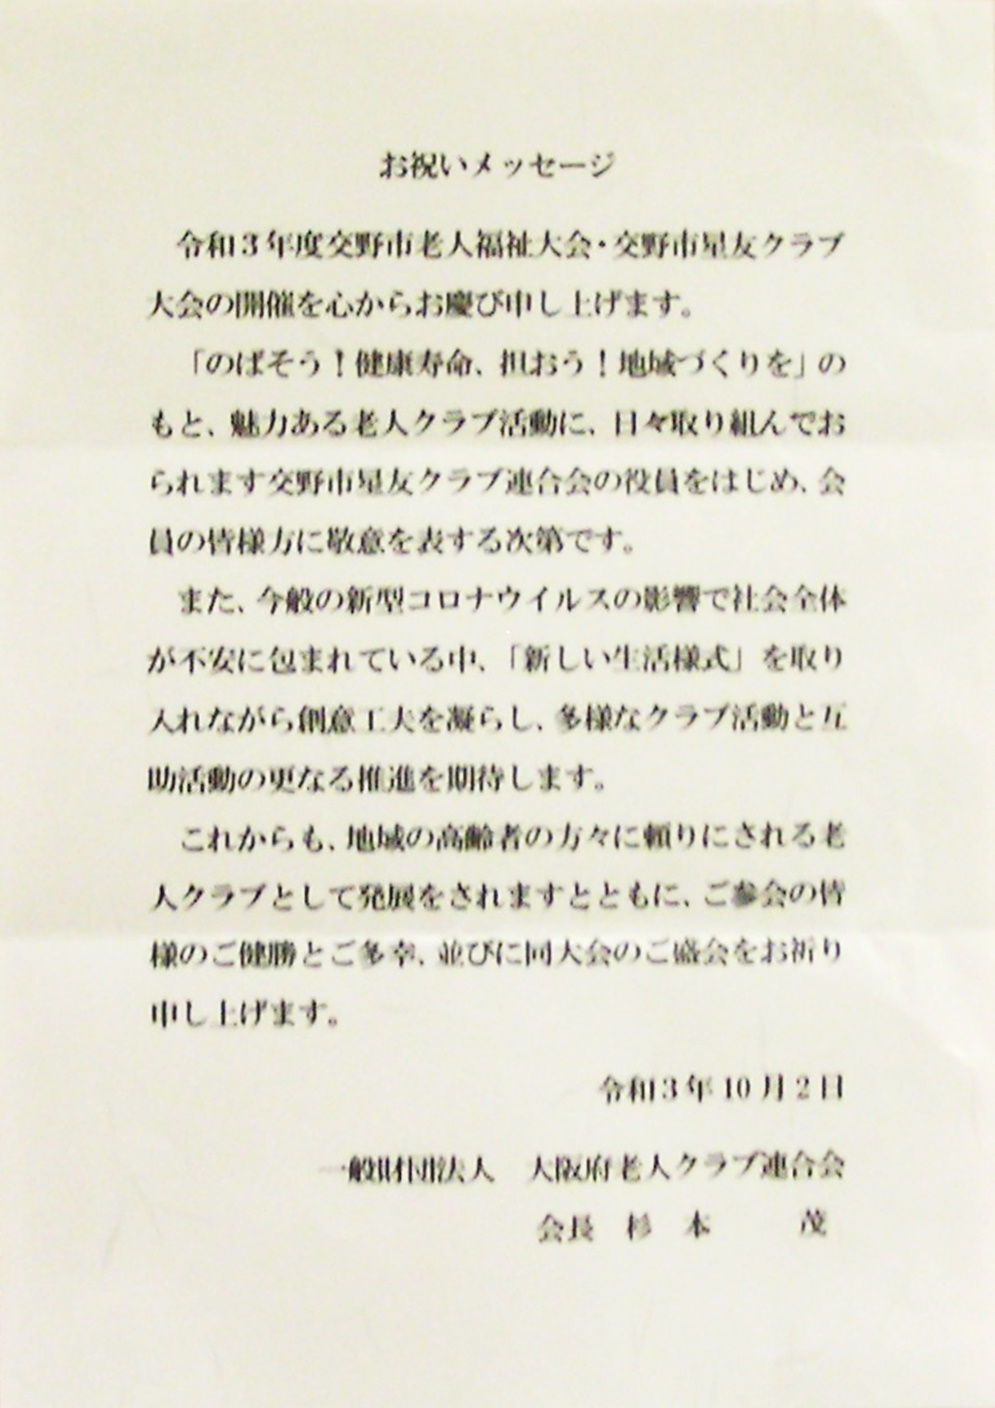 お祝いメッセージ
令和3年度交野市老人福祉大会・交野市星友クラブ
大会の開催を心からお慶び申し上げます。
「のばそう！健康寿命、担おう！地域づくりを」の
もと、魅力ある老人クラブ活動に、日々取り組んでお
られます交野市星友クラブ連合会の役員をはじめ、会
員の皆様方に敬意を表する次第です。
また、今般の新型コロナウイルスの影響で社会全体
が不安に包まれている中、「新しい生活様式」を取り
入れながら創意工夫を凝らし、多様なクラブ活動と互
助活動の更なる推進を期待します。
これからも、地域の高齢者の方々に頼りにされる老
人クラブとして発展をされますとともに、ご参会の皆
様のご健勝とご多幸、並びに同大会のご盛会をお祈り
申し上げます。
令和3年10月2日
一般財団法人　大阪府老人クラブ連合会
会長　杉　本　　　茂